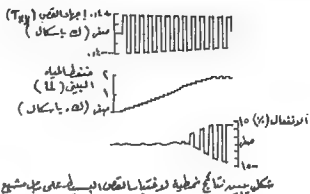 ٤٠+
اجهاد القص (τxy)
صفر (ك باسكال)
٤٠-
ضغط المياه
البيني (Δu)
(ك. باسكال)
٢
١
صفر
الانفعال (٪)
١٥
صفر
١٥-
شكل يبين نتائج نمطية لاختبار القص البسيط على رمل مشبع